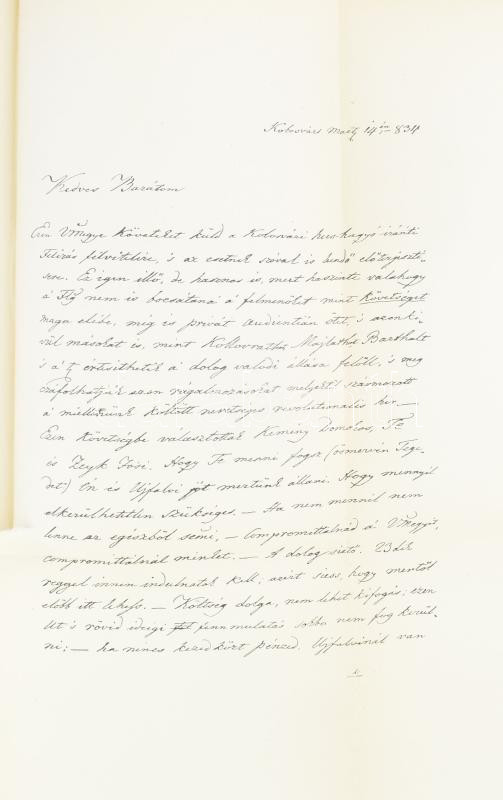 Kolosvárs Mart. 14én 834
Kedves Barátom
Ezen Vmegye követeket küld a Kolosvári hurhagyó iránti
Felirás felvitelére, 's az esetnek szóval is leendő előterjeszté-
sére. Ez igen illő, de hasznos is, mert haszinte valahogy
á Flg nem is bocsátaná a felmenőket mint követséget
maga elébe, még is privát Audientián Őtet, 's azonki-
vül másokat is, mint Kollovrathot Majlathot Barthalt
's á t. értesithetik a dolog valódi állása felöll, 's meg
czáfolhatják azon rágalmazásokat melyek származott
á miellőttünk költött nevetséges revolutionalis hir. —
Ezen követségbe választottak Kemény Domokos, Te
és Zeyk Jósi. Hogy Te menni fogsz (ismervén Tége-
det) Én és Ujfalvi jót mertünk állani. Hogy mennyil
elkerülhetetlen szükséges. — Ha nem mennél nem
lenne az egészből semi, — Compromittalnád á Vmegyét,
compromittálnál minket. — A dolog siető. 23dik
reggel innen indulnotok kell; azért siess, hogy mentől
előbb itt lehess. — Költség dolga, nem lehet kifogás; ezen
Ut 's rövid ideigi fennmulatás sokba nem fog kerül-
ni; — ha nincs kezed közt pénzed. Ujfalvinál van